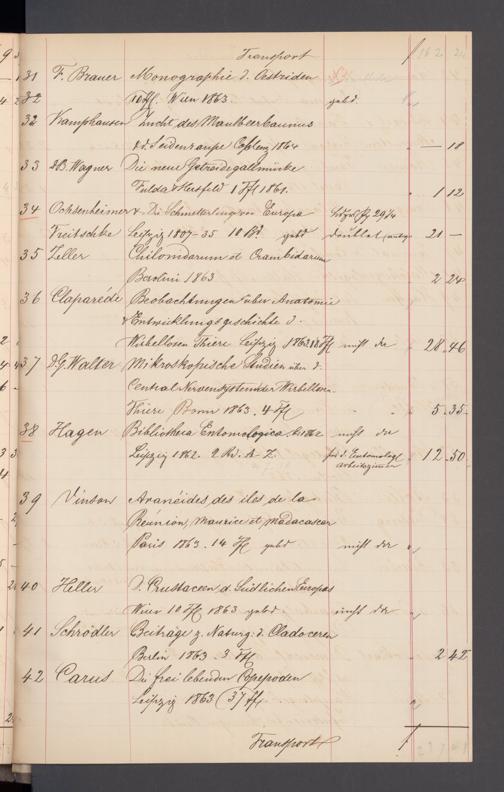 Transport
31 F. Brauer Monographie d. Oestriden
32 Wien 1863 gebd.
32 Kamphausen Zucht des Maulbeerbaumes
Seidenraupe Coblenz 1864 — 18
33 Wagner Die neue Getreidegallmücke
Fulda & Hersfeld 1861. 1 12
34 Ochsenheimer & Die Schmetterling von Europa
Treitschke Leipzig 1807-35 10 Bd gebd 21 —
35 Zeller Chilonidarum et Crambidarum
Berlini 1863 2 24
36 Claparéde Beobachtungen über Anatomie
& Entwicklungsgeschichte d.
Wirbellosen Thiere Leipzig 1863 nicht da 28.46
37 Dr G. Walter Mikroskopische Studien über d.
Central Nervensystem der Wirbellosen
Thiere Bonn 1863. 4 5.35
38 Hagen Bibliotheca Entomologica nicht da
Leipzig 1862. 2 Bd. A-Z. 12.50
39 Vinson Aranéides des iles de la
Réunion, Maurice et Madacascar
Paris 1863. 14 gebd nicht da
40 Heller D. Crustaceen d. Südlichen Europas
Wien 10 1863 gebd nicht da
41 Schrödler Beiträge z. Naturg. d. Cladoceren
Berlin 1863. 3 2 42
42 Carus Die frei lebenden Copepoden
Leipzig 1863 (37
Transport